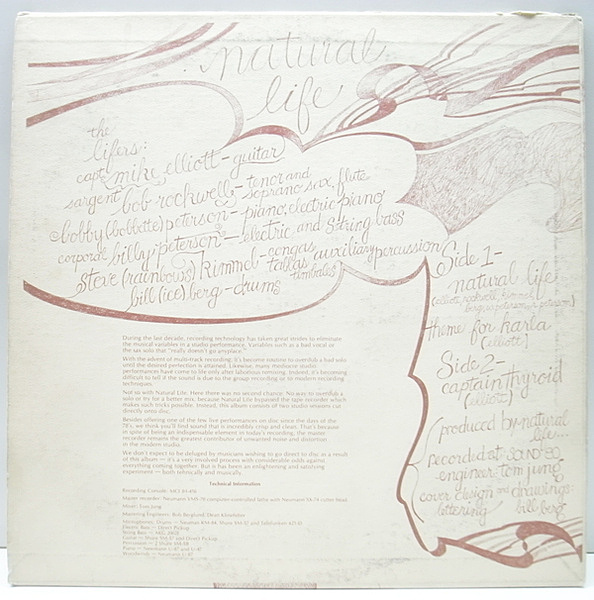 natural
life
the
lifers:
capt. mike elliott - guitar
sargent bob rockwell - tenor and
soprano sax, flute
bobby (bobbette) peterson - piano, electric piano
corporal billy peterson - electric and string bass
steve (rainbows) kimmel - congas
tablas auxiliary percussion
timbales
bill (ice) berg - drums
Side 1 -
natural life
(elliott, rockwell, kimmel,
berg, peterson, peterson)
theme for karla
(elliott)
Side 2 -
captain thyroid
(elliott)
(produced by natural
life...
recorded at SOUND 80
engineer tom jung
cover design and drawings
lettering bill berg
During the last decade, recording technology has taken great strides to eliminate
the musical variables in a studio performance. Variables such as a bad vocal or
the sax solo that "really doesn't go anyplace."
With the advent of multi-track recording, it's become routine to overdub a bad solo
until the desired perfection is attained. Likewise, many mediocre studio
performances have come to life only after laborious remixing. Indeed, it's becoming
difficult to tell if the sound is due to the group recording or to modern recording
techniques.
Not so with Natural Life. Here there was no second chance. No way to overdub a
solo or try for a better mix, because Natural Life bypassed the tape recorder which
makes such tricks possible. Instead, this album consists of two studio sessions cut
directly onto disc.
Besides offering one of the few live performances on disc since the days of the
78's, we think you'll find sound that is incredibly crisp and clean. That's because
in spite of being an indispensable element in today's recording, the master
recorder remains the greatest contributor of unwanted noise and distortion
in the modern studio.
We don't expect to be deluged by musicians wishing to go direct to disc as a result
of this album — it's a very involved process with considerable odds against
everything coming together. But is has been an enlightening and satisfying
experience — both technically and musically.
Technical Information
Recording Console: MCI
Master recorder: Neumann VMS-70 computer-controlled lathe with Neumann SX-74 cutter head.
Mixer: Tom Jung
Mastering Engineers: Bob Berglund, Dean
Microphones: Drums — Neuman KM 84, Shure SM
Electric Bass — Direct Pickup
String Bass —
Guitar — Shure SM 57 and Direct Pickup
Percussion — 2 Shure
Piano — Neumann U-47 and U-87